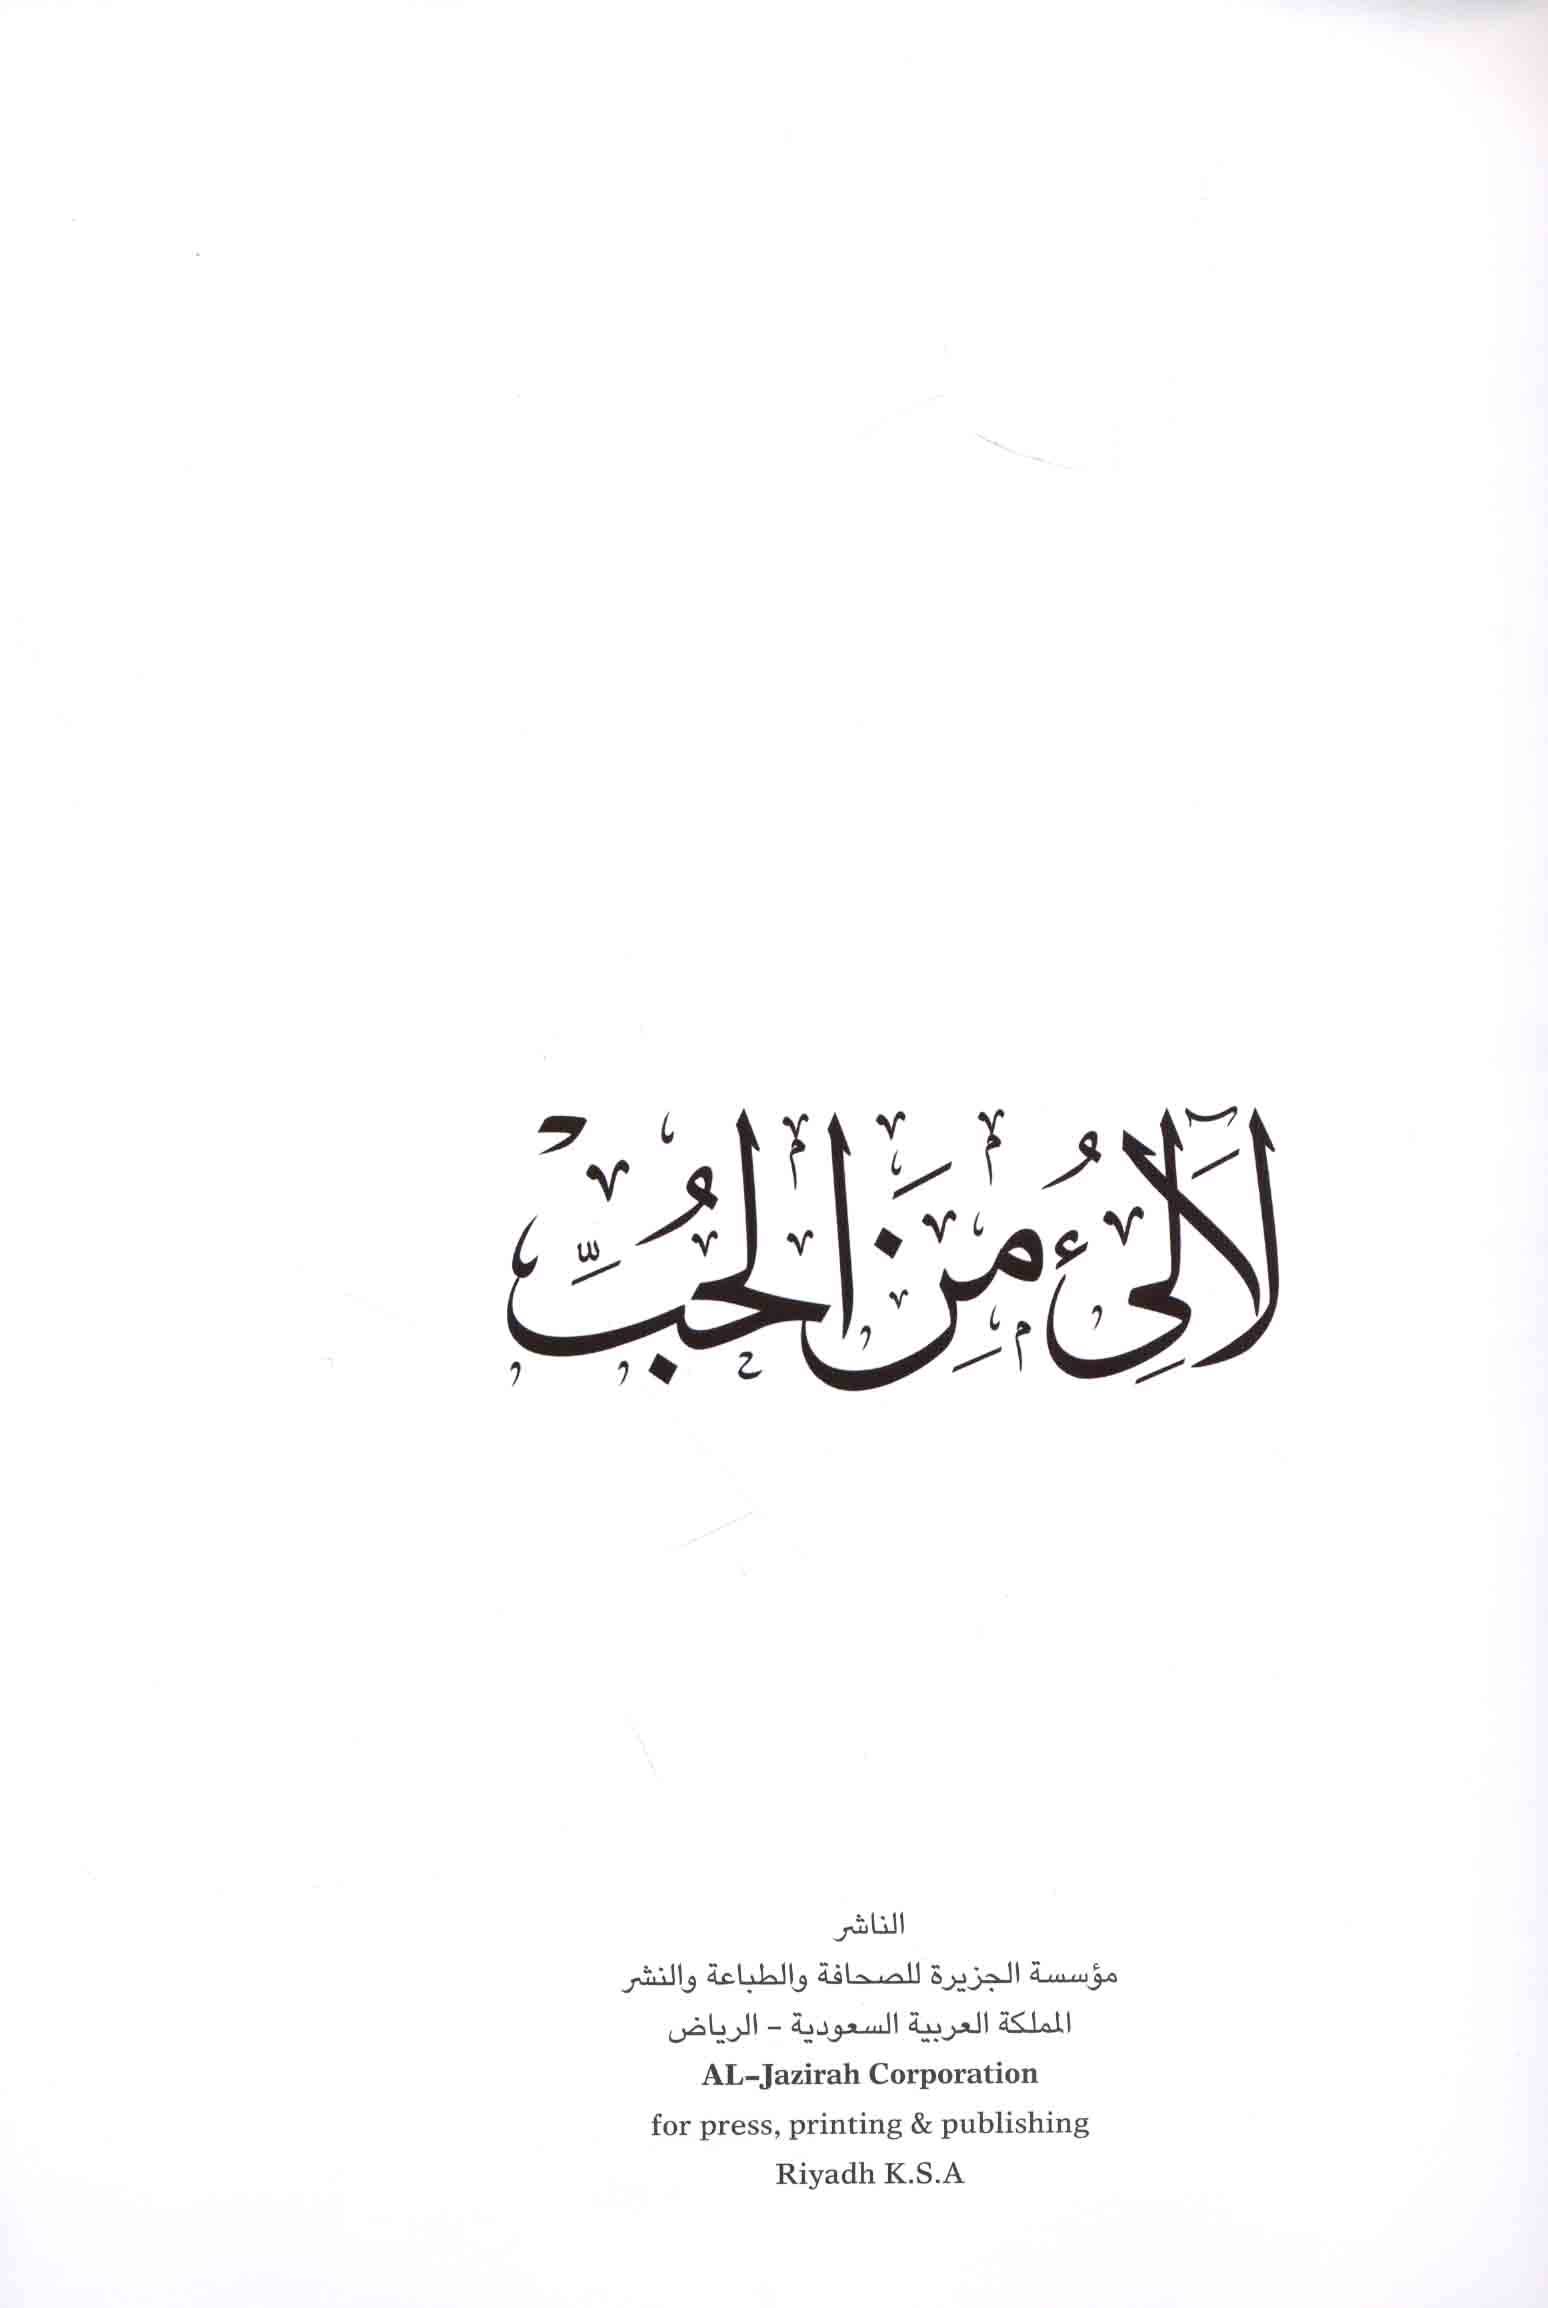 لَآلِئُ مِنَ الحُبِّ
الناشر
مؤسسة الجزيرة للصحافة والطباعة والنشر
المملكة العربية السعودية - الرياض
AL-Jazirah Corporation
for press, printing & publishing
Riyadh K.S.A